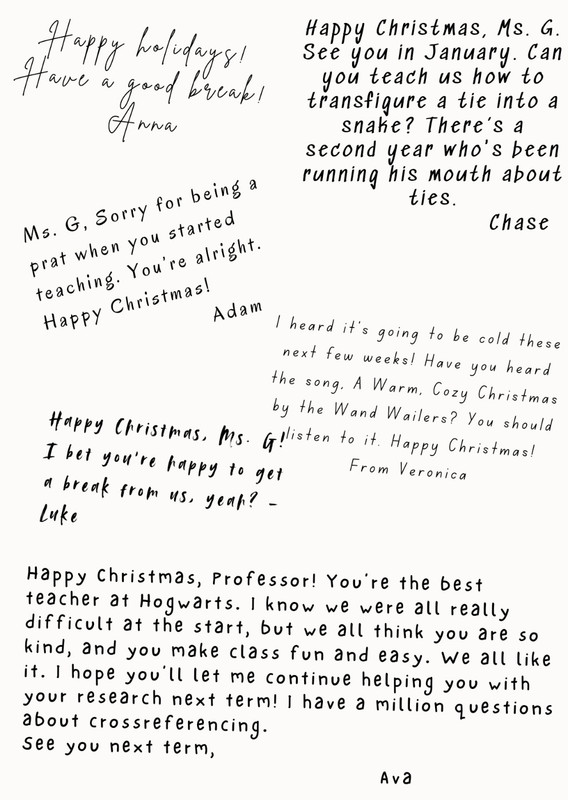 Happy holidays!
Have a good break!
Anna
Happy Christmas, Ms. G.
See you in January. Can
you teach us how to
transfigure a tie into a
snake? There's a
second year who's been
running his mouth about
ties.
Chase
Ms. G, Sorry for being a
prat when you started
teaching. You're alright.
Happy Christmas!
Adam
I heard it's going to be cold these
next few weeks! Have you heard
the song, A Warm, Cozy Christmas
by the Wand Wailers? You should
listen to it. Happy Christmas!
From Veronica
Happy Christmas, Ms. G!
I bet you're happy to get
a break from us, yeah? -
Luke
Happy Christmas, Professor! You're the best
teacher at Hogwarts. I know we were all really
difficult at the start, but we all think you are so
kind, and you make class fun and easy. We all like
it. I hope you'll let me continue helping you with
your research next term! I have a million questions
about crossreferencing.
See you next term,
Ava